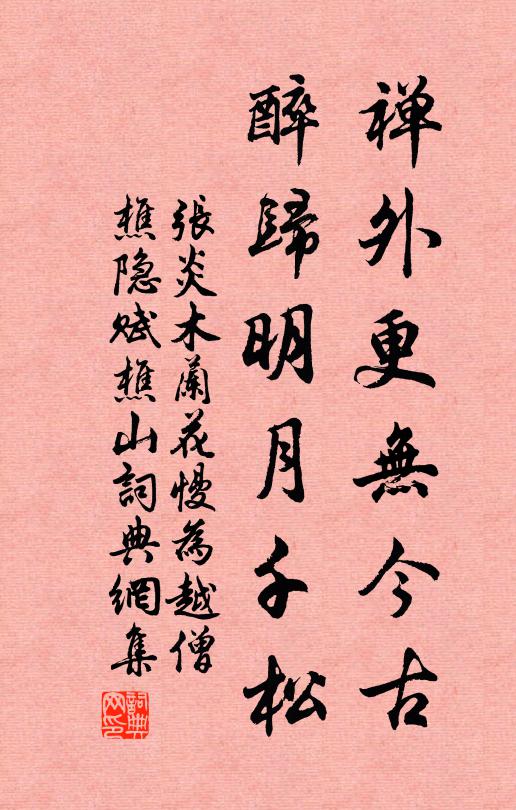 禅外更無今古
醉歸明月千松
張炎木蘭花慢為越僧
樵隐賦樵山詞典網集
詞典网印